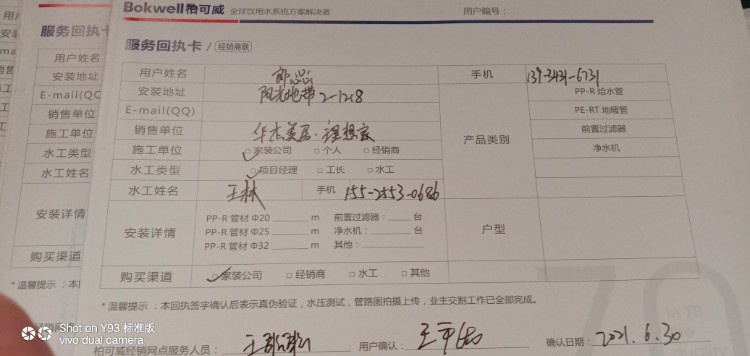 Bokwell柏可威 全球饮用水系统方案解决者 用户编号：
服务回执卡/ 经销商联
用户姓名 手机 139-3431-6731
安装地址 阳光地带2-1218 PP-R 给水管
E-mail(QQ) PE-RT 地暖管
销售单位 华杰美居·理想家 产品类别 前置过滤器
施工单位 □家装公司 □个人 □经销商 净水机
水工类型 □项目经理 □工长 □水工
水工姓名 王林 手机 155-2553-0686
PP-R 管材 Φ20 m 前置过滤器： 台
安装详情 PP-R 管材 Φ25 m 净水机： 台 户型
PP-R 管材 Φ32 m 其他：
购买渠道 □家装公司 □经销商 □水工 □其他
*温馨提示：本回执签字确认后表示真伪验证，水压测试，管路图拍摄上传，业主交割工作已全部完成。
柏可威经销网点服务人员： 用户确认： 确认日期：2021.6.30
服务回执
用户姓名
安装地址
E-mail(QQ
销售单位
施工单位
水工类型
水工姓名
安装详情
购买渠道
*温馨提示：本
70
In 70
Shot on Y93 标准版
vivo dual camera